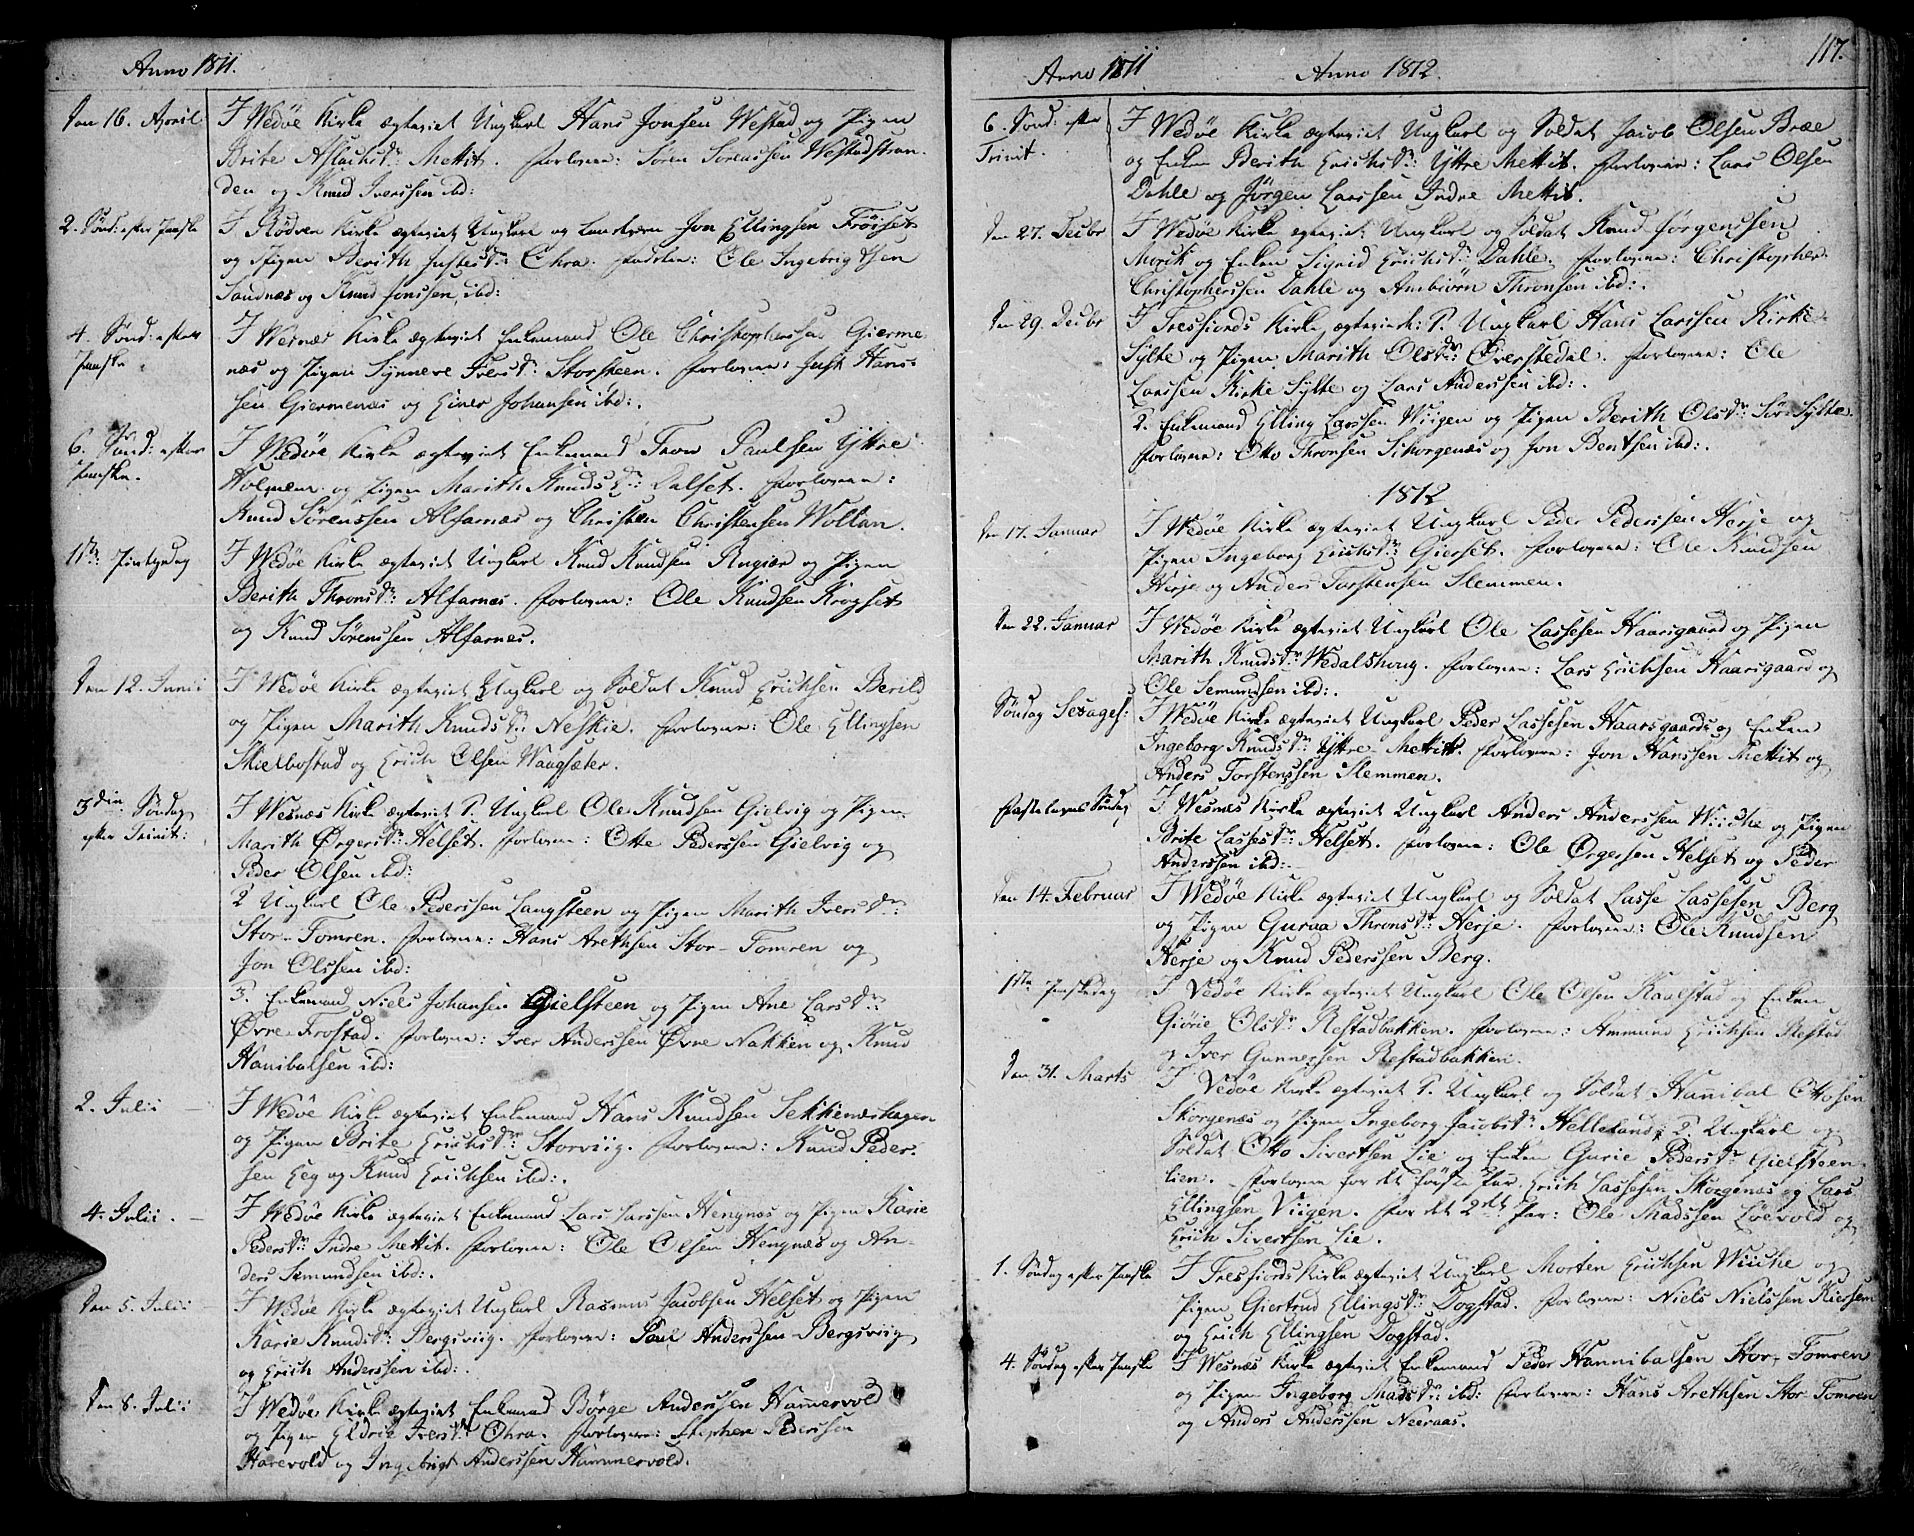 Anno 1811.
Den 16. April
I Wedöe Kirke ægteviet Ungkarl Hans Jonsen Westad og Pigen
Brite Aslachsdr: Mettit. Forlovere: Sören Sörenssen Westadstran-
den og Knud Iverssen ibd:
2. Sönd: efter Paaske
I Rödven Kirke ægteviet Ungkarl og Landværn Jon Ellingsen Fröiset
og Pigen Berith Justesdr: Ohra. Forlovere: Ole Ingebrigtsen
Sandnæs og Knud Jonssen ibd:
4. Sönd: efter
Paaske
I Wesnæs Kirke ægteviet Enkemand Ole Christophersen Gierme-
næs og Pigen Synneve Iversdr: Storsteen. Forlovere: Just Hans-
sen Giermenæs og Einer Johansen ibd:.
6. Sönd: efter
Paaske.
I Wedöe Kirke ægteviet Enkemand Tron Paulsen Yttre
Holmem og Pigen Marith Knudsdr: Dalset. Forlovere:
Knud Sörenssen Alfarnæs og Christen Christensen Woldan.
1ste Pintsedag
I Wedöe Kirke ægteviet Ungkarl Knud Knudsen Rngiær og Pigen
Berith Thronsdr: Alfarnæs. Forlovere: Ole Knudsen Krogset
og Knud Sörenssen Alfarnæs.
Den 12. Junii
I Wedöe Kirke ægteviet Ungkarl og Soldat Knud Erichsen Berild
og Pigen Marith Knudsdr: Neskie. Forlovere: Ole Ellingsen
Skielbostad og Erich Olsen Waagsæter.
3die Söndag
efter Trinit:
I Wesnæs Kirke ægteviet 1. Ungkarl Ole Knudsen Gielvig og Pigen
Marith Örgersdr: Helset. Forlovere: Otte Pederssen Gielvig og
Peder Olsen ibd:
2 Ungkarl Ole Pederssen Langsteen og Pigen Marith Iversdr:
Stor-Tomren. Forlovere: Hans Arethsen Stor-Tomren og
Jon Olssen ibd:
3. Enkemand Niels Johansen Gielsteen og Pigen Ane Larsdr:
Övre-Frostad. Forlovere: Iver Anderssen Övre Nakken og Knud
Hanibalsen ibd:
2. Julii
I Wedöe Kirke ægteviet Enkemand Hans Knudsen Sekkenæshagen
og Pigen Brite Erichsdr: Storviig. Forlovere: Knud Peder-
sen Eeg og Knud Erichsen ibd:.
4. Julii.
I Wedöe Kirke ægteviet Enkemand Lars Larssen Hengnæs og Pigen Karie
Pedersdr: Indre Mettit. Forlovere: Ole Olsen Hengnæs og An-
ders Semundsen ibd:.
Den 5. Julii
I Wedöe Kirke ægteviet Ungkarl Rasmus Jacobsen Helset og Pigen
Karie Knudsdr: Bergsviig. Forlovere: Poul Anderssen Bergsviig
og Erich Anderssen ibd:.
Den 8. Julii
I Wedöe Kirke ægteviet Enkemand Börge Anderssen Hamervold
og Pigen Eldrie Iversdr: Ohra. Forlovere: Stephen Pederssen
Harevold og Ingebrigt Anderssen Hammervold.
Anno 1811 Anno 1812. 117.
6. Sönd: efter
Trinit.
I Wedöe Kirke ægteviet Ungkarl og Soldat Jacob Olsen Bræe
og Enken Berith Erichsdr: Yttre Mettit. Forlovere: Lars Olsen
Dahle og Jörgen Larssen Indre Mettit.
Den 27. Decbr
I Wedöe Kirke ægteviet Ungkarl og Soldat Knud Jörgenssen
Morck og Enken Sigrid Erichsdr: Dahle. Forlovere: Christopher
Christopherssen Dahle og Ambiörn Thronsen ibd:.
Den 29. Decbr
I Tresfiords Kirke ægteviet: 1. Ungkarl Hans Larssen Kirke-
Sylte og Pigen Marith Olsdr: Överstedal. Forlovere: Ole
Larssen Kirke Sylte og Lars Anderssen ibd:.
2. Enkemand Elling Larssen Wiigen og Pigen Berith Olsdr: Sör-Sylte.
Forlovere: Otto Thronsen Skorgenæs og Jon Bentsen ibd:.
1812
Den 17. Januar
I Wedöe Kirke ægteviet Ungkarl Peder Pederssen Herje og
Pigen Ingeborg Erichsdr: Gierset. Forlovere: Ole Knudsen
Herje og Anders Torstensen Slemmen.
Den 22. Januar
I Wedöe Kirke ægteviet Ungkarl Ole Lassesen Haarsgaard og Pigen
Marith Knudsdr: Wedalshoug. Forlovere: Lars Erichsen Haarsgaard og
Ole Semundsen ibd:.
Söndag Sexages:
I Wedöe Kirke ægteviet Ungkarl Peder Lassesen Haarsgaard og Enken
Ingeborg Knudsdr: Yttre-Mettit. Forlovere: Jon Hanssen Mettit og
Anders Torstenssen Slemmen.
Fastelavns Söndag
I Wesnæs Kirke ægteviet Ungkarl Anders Anderssen Wiiche og Pigen
Brite Lassesdr: Helset. Forlovere: Ole Örgersen Helset og Peder
Anderssen ibd:.
Den 14. Februar
I Wedöe Kirke ægteviet Ungkarl og Soldat Lasse Lassesen Berg
og Pigen Guraa Thronsdr: Herje. Forlovere: Ole Knudsen
Herje og Knud Pederssen Berg.
1ste Paaskedag
I Vedöe Kirke ægteviet Ungkarl Ole Olsen Kaalstad og Enken
Giörie Olsdr: Restadbakken. Forlovere: Ammund Erichsen Restad
og Iver Gunnersen Restadbakken.
Den 31. Marts
I Vedöe Kirke ægteviet 1. Ungkarl og Soldat Hannibal Ottosen
Skorgenæs og Pigen Ingeborg Jacobsdr: Helleland, 2. Ungkarl og
Soldat Otto Sivertsen Lie og Enken Gurie Pedersdr: Gielsteen-
lien. Forlovere for det förste Par: Erich Lassesen Skorgenæs og Lars
Ellingsen Viigen. For det 2det Par: Ole Madssen Löevold og
Erich Sivertsen Lie.
1. Söndag efter Paaske
I Tresfiords Kirke ægteviet Ungkarl Morten Erichsen Wiiche og
Pigen Giertrud Ellingsdr: Dogstad. Forlovere: Niels Nielssen Kiersem
og Erich Ellingsen Dogstad.
4. Söndag efter Paaske
I Wesnæs Kirke ægteviet Enkemand Peder Hannibalsen Stor-Tomren
og Pigen Ingeborg Madsdr: ibd: Forlovere: Hans Arethsen Stor Tomren
og Anders Anderssen Neeraas.